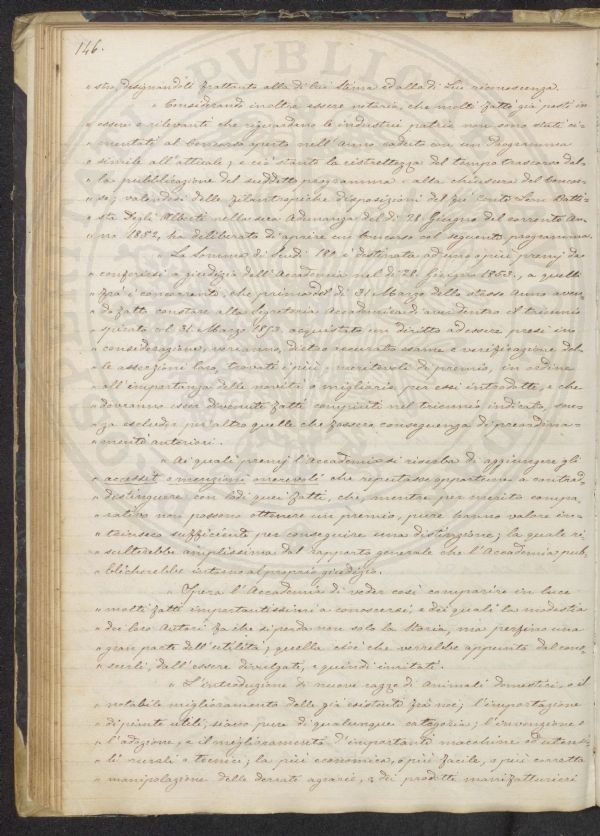 146.
« stre, designandoli frattanto alla di lui stima ed alla di Lui riconoscenza.
« Considerando inoltre essere notorio, che molti fatti già posti in
« essere e rilevanti che riguardano le industrie patrie non sono stati ci-
« mentati al Concorso aperto nell'Anno caduto con un Programma
« simile all'attuale, e ciò stante la ristrettezza del tempo trascorso dal-
« la pubblicazione del suddetto programma alla chiusura del Concor-
« so; valendosi delle filantropiche disposizioni del fu Conte Leon Batti-
« sta Degli Alberti nella sua Adunanza del dì 28 Giugno del corrente An-
« no 1852, ha deliberato di aprire un Concorso col seguente programma.
« La Somma di Scudi 180 è destinata ad uno o più premj da
« conferirsi a giudizio dell'Accademia nel dì 28 Giugno 1853, a quelli
« fra i concorrenti, che prima del dì 31 Marzo dello stesso Anno aven-
« do fatto constare alla Segreteria Accademica di aver dentro il triennio
« spirato col 31 Marzo 1853 acquistato un diritto ad essere presi in
« considerazione, verranno, dietro accurato esame e verificazione del-
« le asserzioni loro, trovati i più meritevoli di premio, in ordine
« all'importanza delle novità o migliorie per essi introdotte, e che
« dovranno esser divenute fatti compiuti nel triennio indicato, sen-
« za escluder per altro quelle che fossero conseguenza di precedenta-
« menti anteriori.
« Ai quali premj l'Accademia si riserba di aggiungere gli
« accessit o menzioni onorevoli che reputasse opportune a contrad-
« distinguere con lodi quei fatti, che, mentre per merito compa-
« rativo non possono ottenere un premio, pure hanno valore in-
« trinseco sufficiente per conseguire una distinzione; la quale ri-
« sulterebbe amplissima dal rapporto generale che l'Accademia pub-
« blicherebbe intorno al proprio giudizio.
« Spera l'Accademia di veder così comparire in luce
« molti fatti importantissimi a conoscersi, e dei quali la modestia
« dei loro Autori fa che si perda non solo la Storia, ma perfino una
« gran parte dell'utilità; quella cioè che verrebbe appunto dal cono-
« scerli, dall'essere divulgati, e quindi imitati.
« L'introduzione di nuove razze di Animali domestici, o il
« notabile miglioramento delle già esistenti fra noi; l'importazione
« di piante utili, siano pure di qualunque categoria; l'invenzione o
« l'adozione, e il miglioramento d'importanti macchine ed utensi-
« li rurali o tecnici; la più economica, o più facile, o più corretta
« manipolazione delle derrate agrarie, e di prodotti manifatturieri